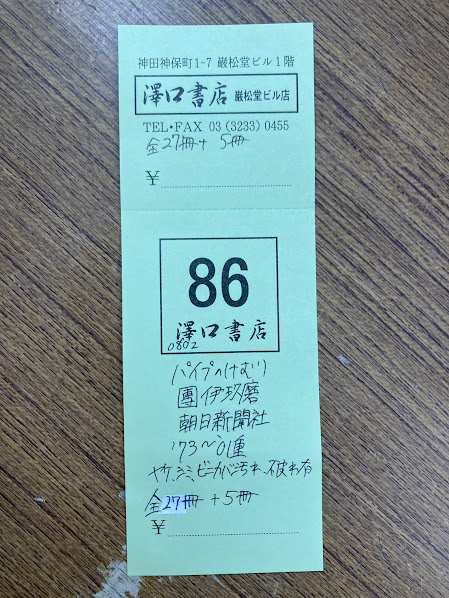 神田神保町1-7 巌松堂ビル1階
澤口書店 巌松堂ビル店
TEL・FAX 03 (3233) 0455
全27冊+5冊
¥
86
澤口書店
0802
パイプのけむり
團伊玖磨
朝日新聞社
'73~'01重
ヤケ、シミ、ビニカバ汚れ、破れ有
全27冊+5冊
¥